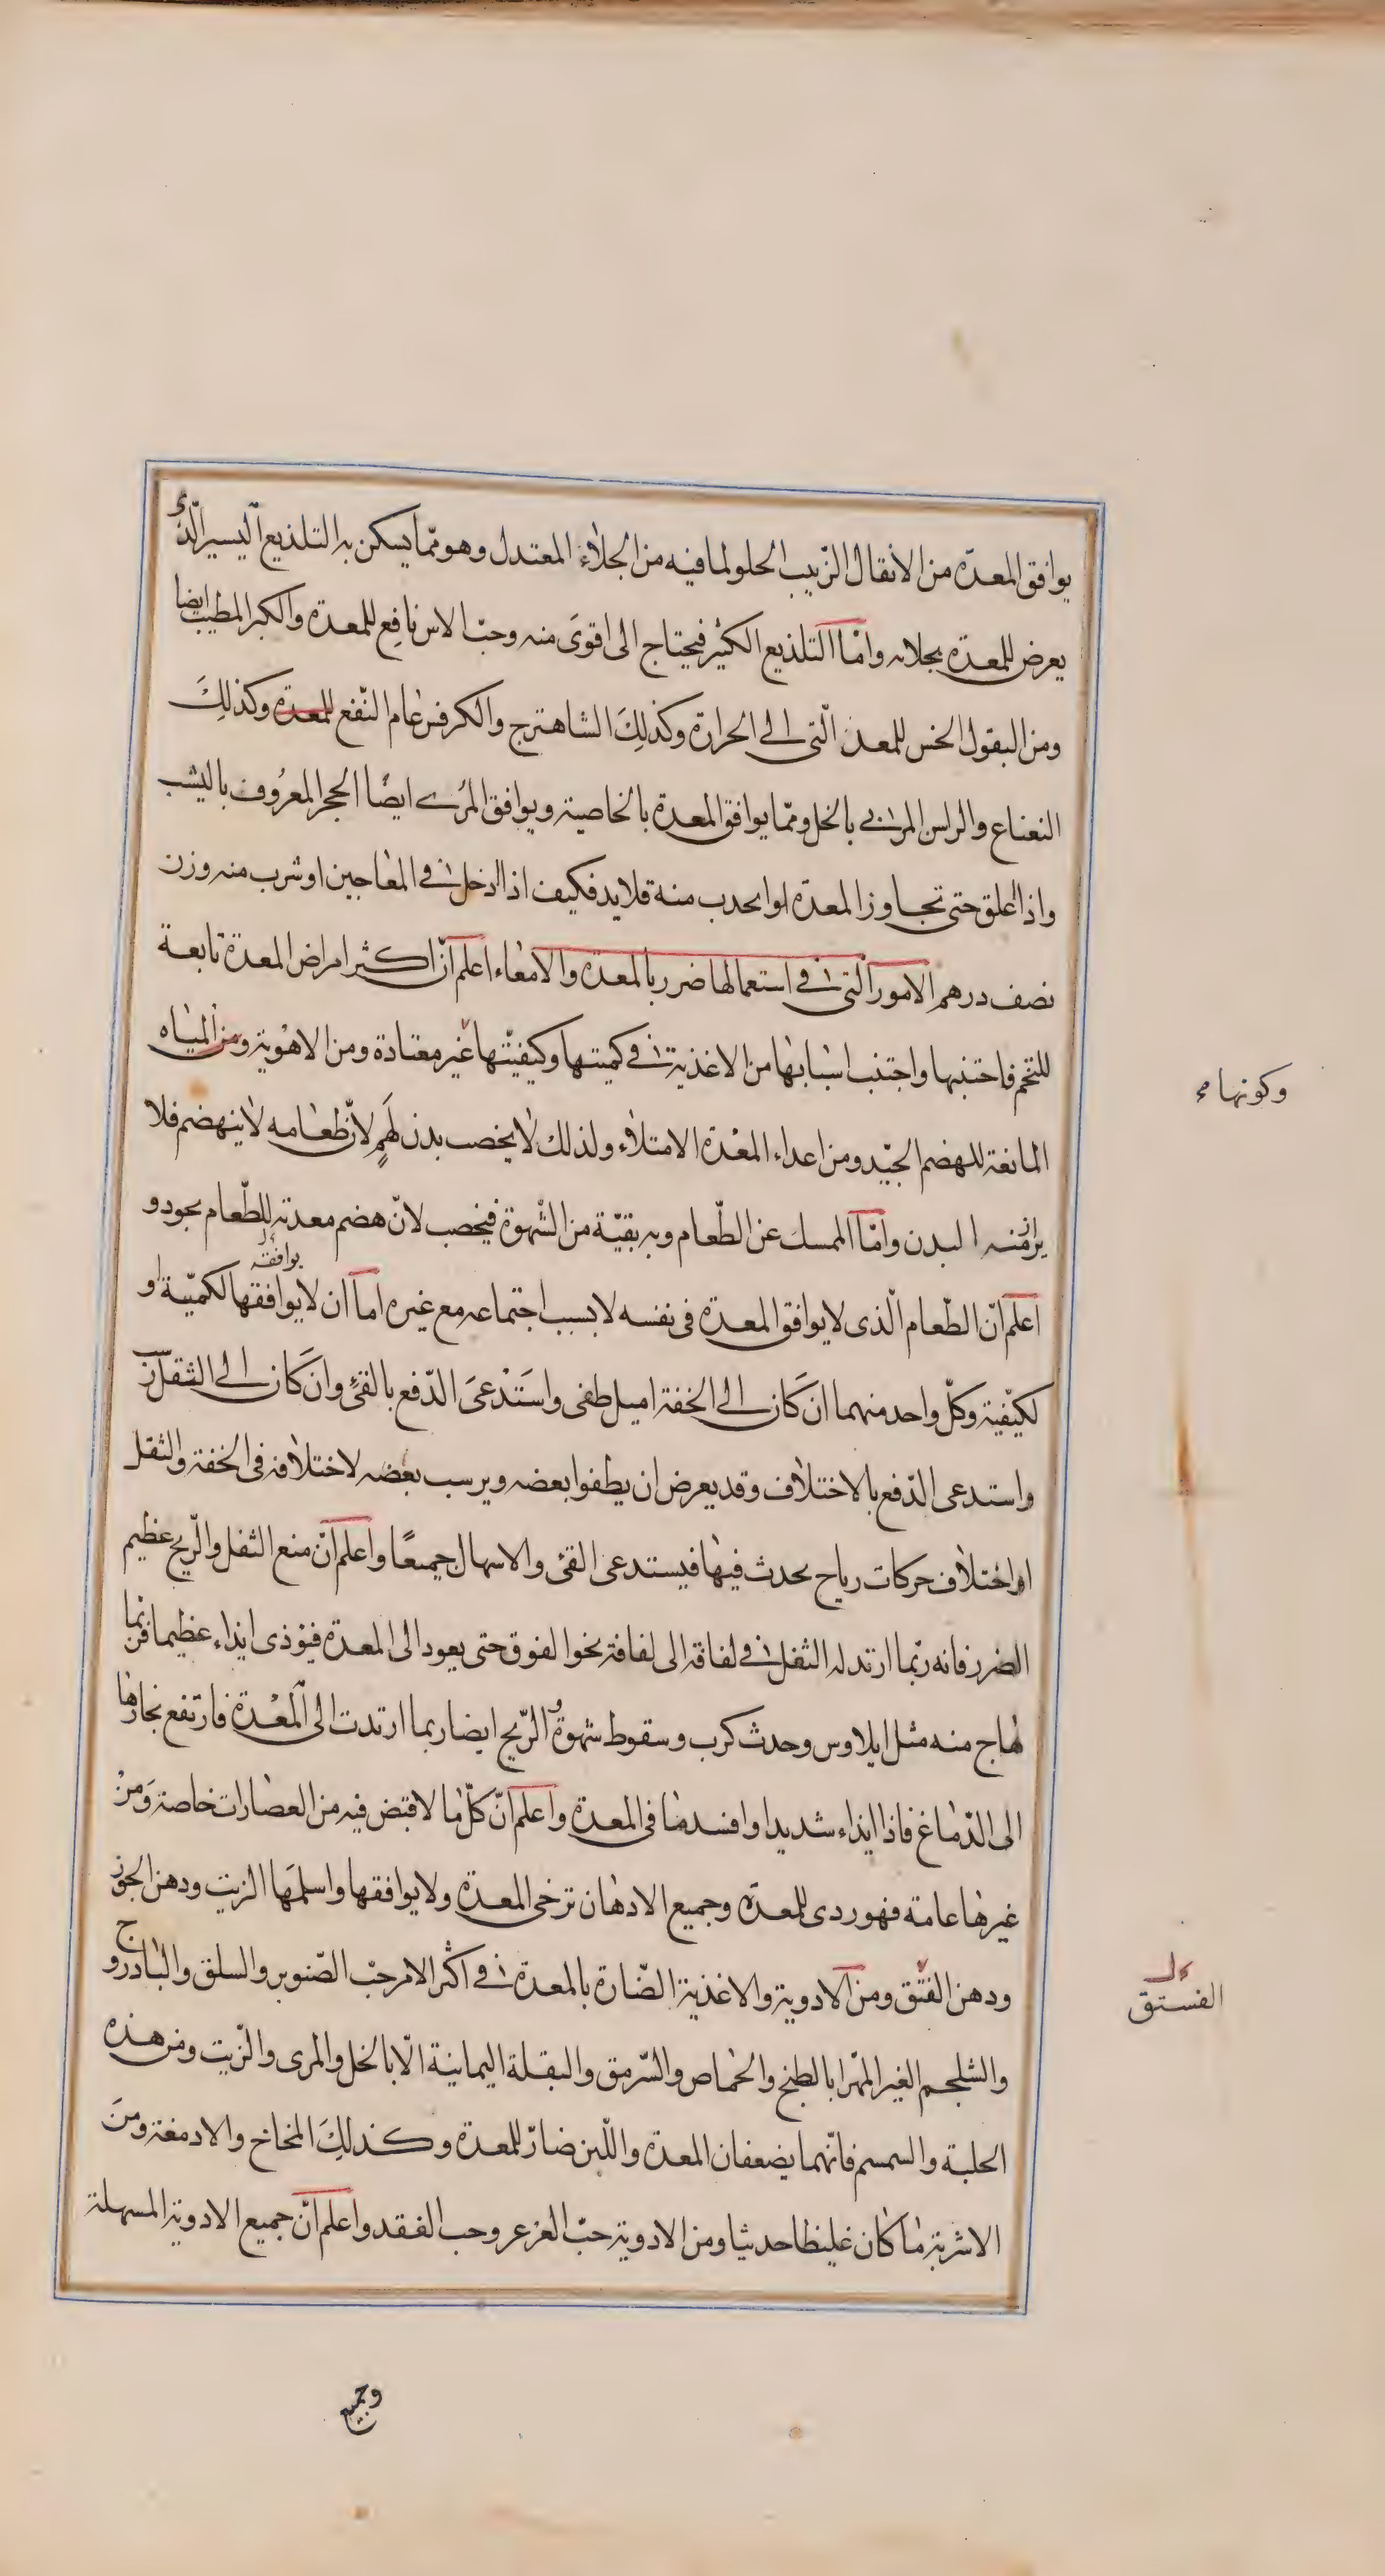 يوافق المعدة من الانقال الزّبيب الحلو لما فيه من الجلاء المعتدل وهو ممّا يسكن به التلذيع اليسير الّذى
يعرض للمعدة بجلائه وامّا التلذيع الكثير فيحتاج الى اقوى منه وحبّ الاس نافع للمعدة والكبر المطيب ايضا
ومن البقول الخس للمعدة الّتى الى الحرارة وكذلك الشاهترج والكرفس عام النّفع للمعدة وكذلك
النعناع والراس المربى بالخل وممّا يوافق المعدة بالخاصية ويوافق المرى ايضًا الحجر المعروف باليشب
واذا علق حتى تجاوز المعدة او منه قلايد فكيف اذا ادخل فى المعاجين او شرب منه وزن
نصف درهم الامور الّتى فى استعمالها ضرر بالمعدة والامعاء اعلم انّ اكثر امراض المعدة تابعة
للتخم فاجتنبها واجتنب اسبابها من الاغذية فى كميتها وكيفيّتها غير معتادة ومن الاهوية ومن المياه
وكونها
المانعة للهضم الجيّد ومن اعداء المعدة الامتلاء ولذلك لا يخصب بدن لهم لانّ طعامه لا ينهضم فلا
البدن وامّا الممسك عن الطّعام وبه بقيّة من الشّهوة فيخصب لانّ هضم معدته للطّعام يجود و
يوافقه
اعلم انّ الطّعام الّذى لا يوافق المعدة فى نفسه لا بسبب اجتماعه مع غيره اما ان لا يوافقها لكميّة او
لكيفية وكلّ واحد منهما ان كان الى الخفة اميل طفى واستدعى الدّفع بالقئ وان كان الى الثقل
واستدعى الدّفع بالاختلاف وقد يعرض ان يطفوا بعضه ويرسب بعضه لاختلافه فى الخفة والثقل
او اختلاف حركات رياح يحدث فيها فيستدعى القئ والاسهال جميعًا واعلم انّ منع الثفل والرّيح عظيم
الضرر فانه ربّما ارتد له الثفل فى لفافة الى لفافة نحوا لفوق حتى يعود الى المعدة فيؤذى ايذاء عظيما فربّما
هاج منه مثل ايلاوس وحدث كرب وسقوط شهوة والرّيح ايضا ربما ارتدت الى المعدة فارتفع بخارها
الى الدّماغ فاذا ايذاء شديدا وافسد ما فى المعدة واعلم انّ كلّ ما لا قبض فيه من العصارات خاصة ومن
غيرها عامة فهو ردى للمعدة وجميع الادهان ترخى المعدة ولا يوافقها واسلمها الزيت ودهن الجوز
ودهن الفتق ومن الادوية والاغذية الضّارة بالمعدة فى اكثر الامر حبّ الصّنوبر والسلق والبادروج
الفستق
والشلجم الغير المهرا بالطبخ والحماض والسّرمق والبقلة اليمانية الّا بالخل والمرى والزّيت ومن هذه
الحلبة والسمسم فانّهما يضعفان المعدة واللّبن ضارّ للمعدة وكذلك المخاخ والادمغة ومن
الاشربة ما كان غليظا حديثا ومن الادوية حبّ العرعر وحب الفقد واعلم انّ جميع الادوية المسهلة
وجميع